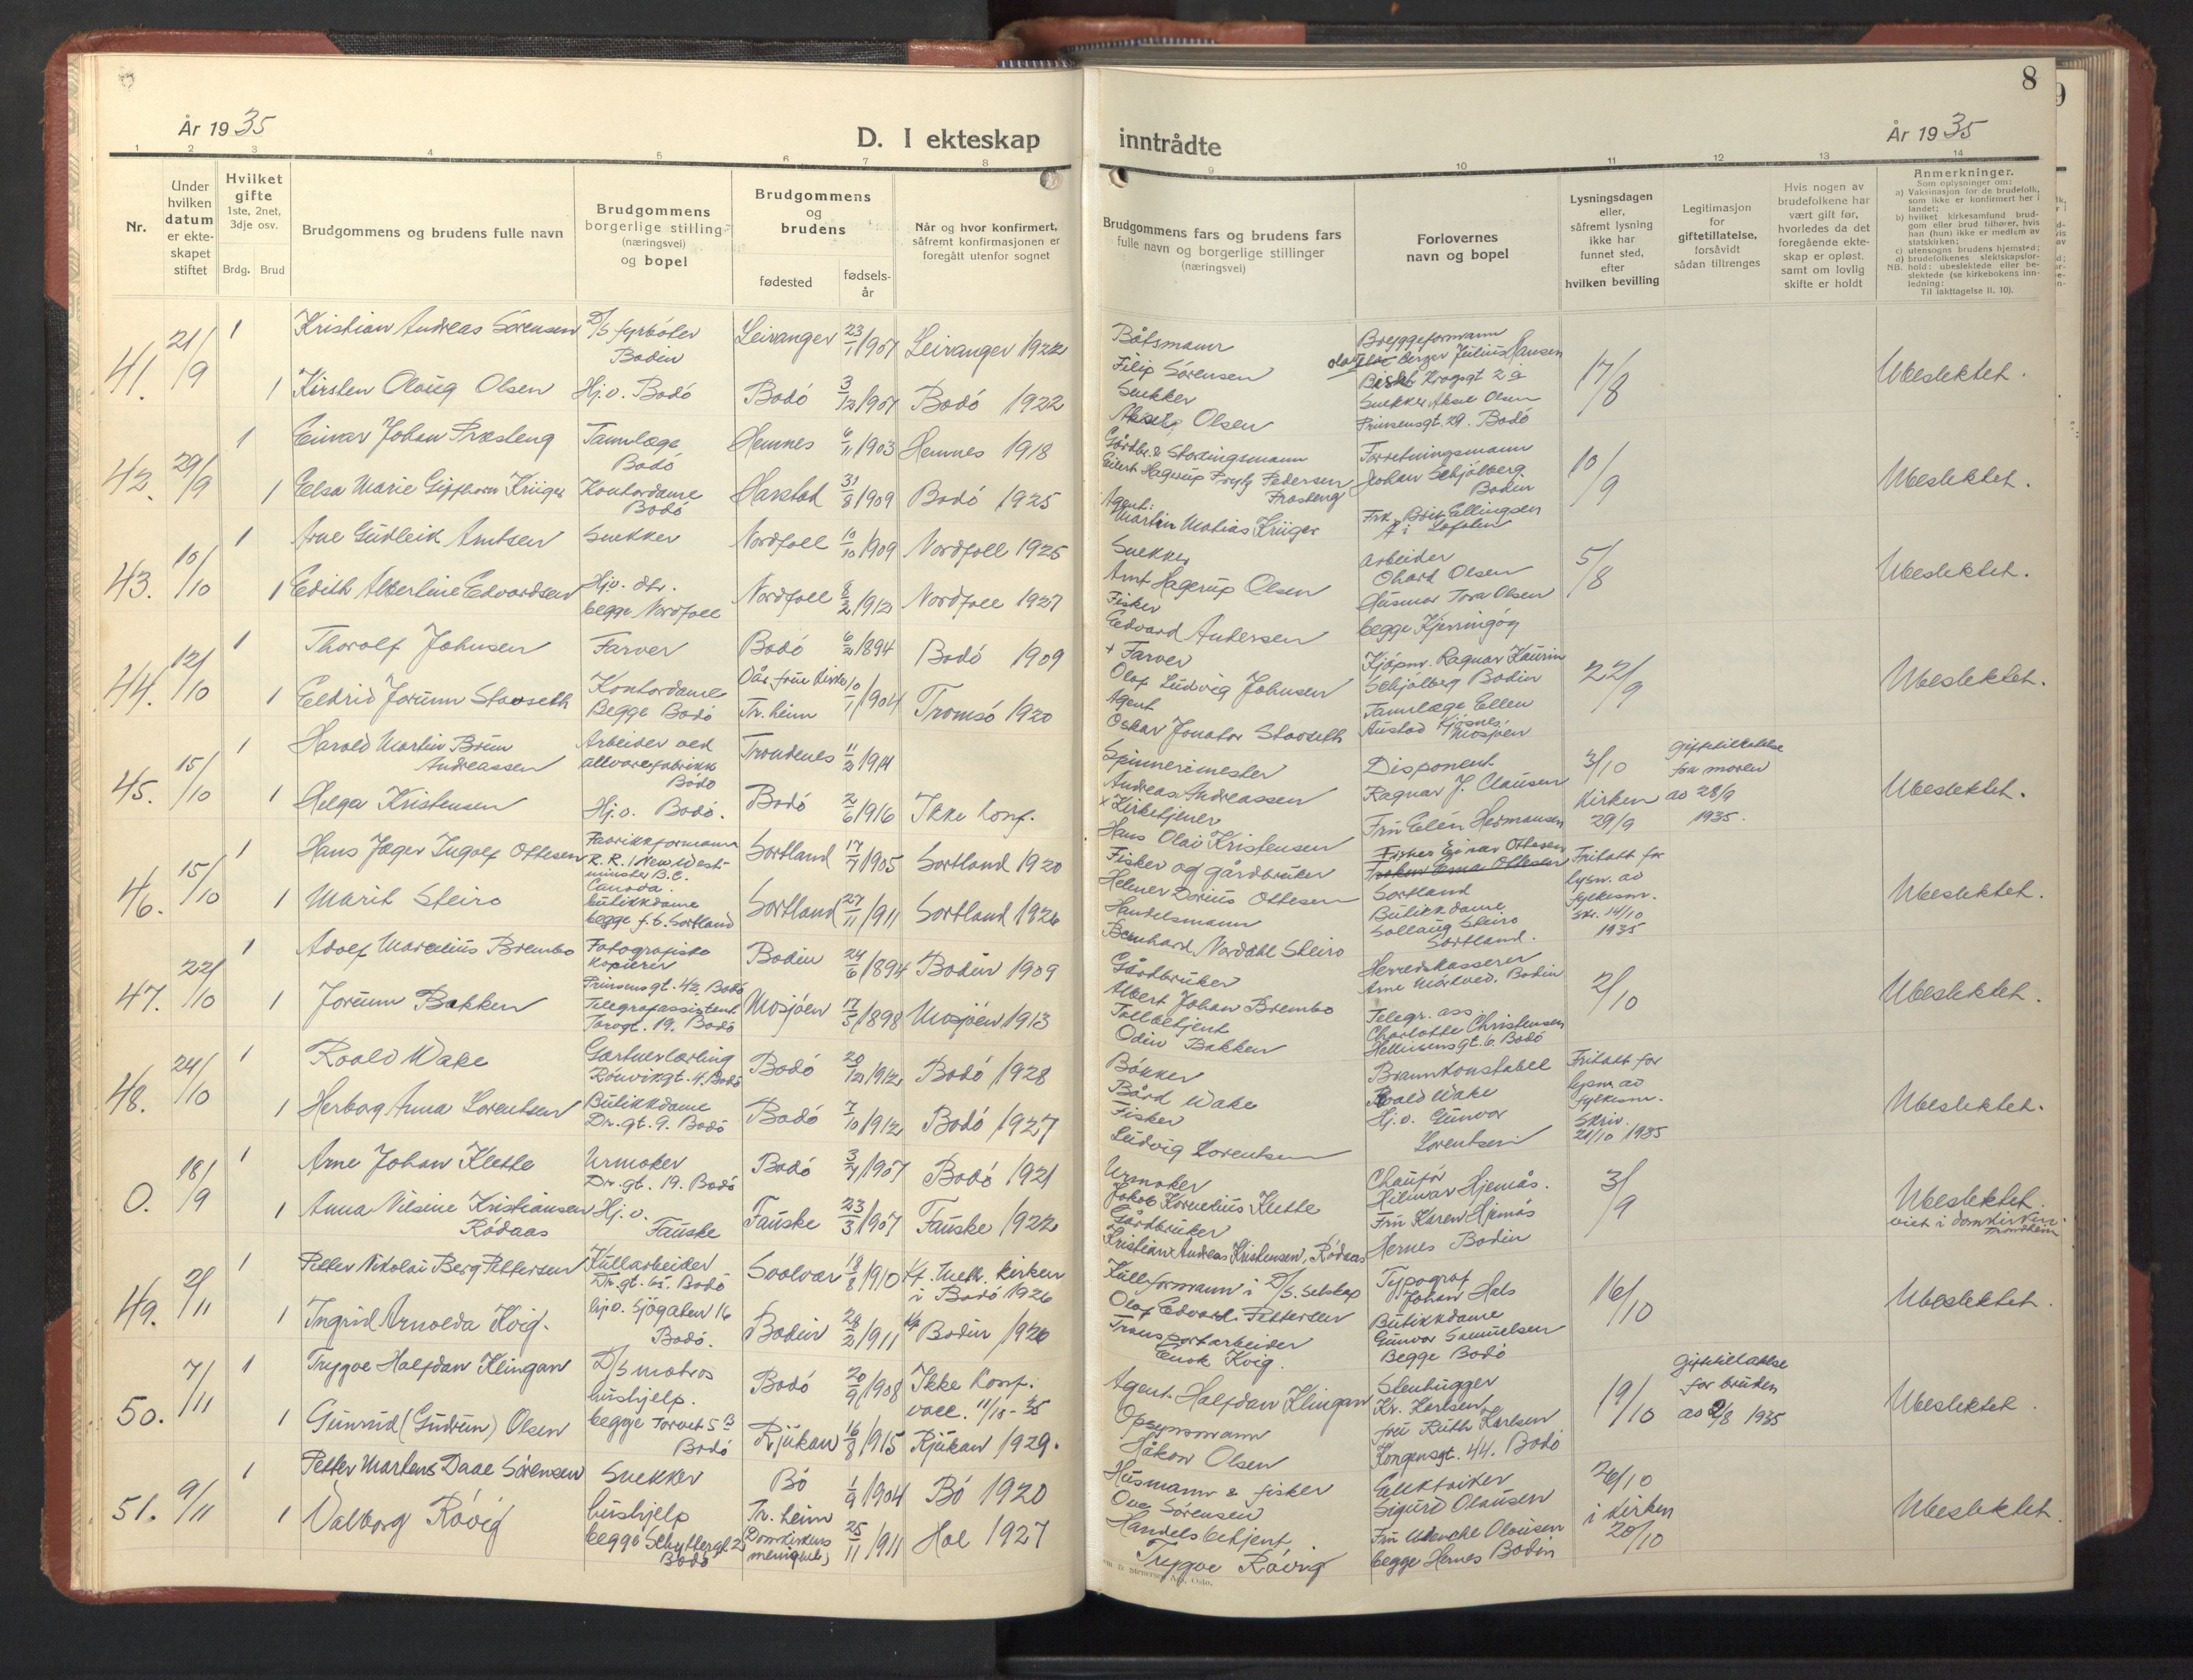 8
År 1935
D. I ekteskap inntrådte
År 1935
1 2 3 4 5 6 7 8 9 10 11 12 13 14
Nr.
Under hvilken datum er ekteskapet stiftet
Hvilket gifte
1ste, 2net, 3dje osv.
Brdg. Brud
Brudgommens og brudens fulle navn
Brudgommens borgerlige stilling (næringsvei) og bopel
Brudgommens og brudens
fødested
fødselsår
Når og hvor konfirmert, såfremt konfirmasjonen er foregått utenfor sognet
Brudgommens fars og brudens fars fulle navn og borgerlige stillinger (næringsvei)
Forlovernes navn og bopel
Lysningsdagen eller, såfremt lysning ikke har funnet sted, efter hvilken bevilling
Legitimasjon for giftetillatelse, forsåvidt sådan tiltrenges
Hvis nogen av brudefolkene har vært gift før, hvorledes da det foregående ekteskap er opløst, samt om lovlig skifte er holdt
Anmerkninger.
Som oplysninger om:
a) Vaksinasjon for de brudefolk, som ikke er konfirmert her i landet;
b) hvilket kirkesamfund brudgom eller brud tilhører, hvis han (hun) ikke er medlem av statskirken;
c) utensogns brudens hjemsted;
d) brudefolkenes slektskapsforhold: ubeslektede eller beslektede (se kirkebokens innledning:
NB. Til iakttagelse II. 10).
41. 21/9 1 Kristian Andreas Sørensen D/S fyrbøter Bodin Leiranger 23/1 1907 Leiranger 1922 Båtsmann Filip Sørensen Bryggeformann Berger Julius Hansen 17/8 Ubeslektet.
1 Kirsten Olaug Olsen Hj.v. Bodö Bodö 3/12 1907 Bodö 1922 Snekker Aksel Olsen Snekker Aksel Olsen Prinsensgt. 29. Bodö
42. 29/9 1 Einar Johan Præsteng Tannlæge Bodö Hemnes 6/11 1903 Hemnes 1918 Gårdbr. & Stortingsmann Eilert Hagerup Pryts Pedersen Præsteng Forretningsmann Johan Schjølberg Bodin 10/9 Ubeslektet.
1 Elsa Marie Gipphorn Krüger Kontordame Bodö Harstad 31/8 1909 Bodö 1925 Agent: Martin Matias Krüger Frk. Ellingsen i Lofoten
43. 10/10 1 Arne Gudleik Arntsen Snekker Nordfoll 10/10 1909 Nordfoll 1925 Snekker Arnt Hagerup Olsen Arbeider Olsen 5/8 Ubeslektet.
1 Edith Alberline Edvardsen Hj.v. dtr. begge Nordfoll Nordfoll 8/2 1912 Nordfoll 1927 Fisker Edvard Andersen Husmor Tora Olsen begge Kjerringøy
44. 12/10 1 Thorolf Johnsen Farver Bodö 6/2 1894 Bodö 1909 + Farver Olaf Ludvig Johnsen Kjöpm. Ragnar Kaurin Schjølberg Bodin 22/9 Ubeslektet.
1 Eldrid Jorunn Stavseth Kontordame Begge Bodö Vår frue kirke Tr.heim 10/1 1904 Tromsö 1920 Agent Oskar Jonator Stavseth Tannlæge Ellen Austad Kjosnes, Mosjøen
45. 15/10 1 Harald Martin Bruun Andreassen Arbeider ved ullvarefabrikk Bodö Trondenes 11/2 1914 Spinnerimester Andreas Andreassen Disponent Ragnar J. Clausen 3/10 Kirken 29/9 giftetillatelse fra moren av 28/9 1935. Ubeslektet.
1 Helga Kristensen Hj.v. Bodö. Bodö 2/6 1916 Ikke konf. + Kirketjener Hans Olai Kristensen Fru Elén Hermansen
46. 15/10 1 Hans Jæger Ingolf Ottesen Fabrikkformann R.R. 1 New Westminster B.C. Canada. Sortland 17/7 1905 Sortland 1920 Fisker og gårdbruker Helmer Dorius Ottesen Fisker Einar Ottesen Sortland Fritatt for lysn. av fylkesm. skr. 14/10 1935 Ubeslektet.
1 Marit Steiro butikkdame begge f.t. Sortland Sortland 27/11 1911 Sortland 1926 Handelsmann Bernhard Nordahl Steiro Butikkdame Sollaug Steiro Sortland.
47. 22/10 1 Adolf Marcelius Brembo Fotografisk kopierer Prinsensgt. 42. Bodö Bodin 24/6 1894 Bodin 1909 Gårdbruker Albert Johan Brembo Herredskasserer Arne Mörkved. Bodin 2/10 Ubeslektet.
1 Jorunn Bakken Telegrafassistent Torvgt. 19. Bodö Mosjöen 17/5 1898 Mosjöen 1913 Tollbetjent Odin Bakken Telegr. ass. Charlotte Christensen gt. 6. Bodö
48. 24/10 1 Roald Wake Gartnerlærling Rönvikgt. 4. Bodö Bodö 20/12 1912 Bodö 1928 Bökker Bård Wake Brannkonstabel Roald Wake Fritatt for lysn. av fylkesm. Skriv. 21/10 1935 Ubeslektet.
1 Herborg Anna Lorentsen Butikkdame Dr.gt. 9. Bodö Bodö 7/10 1912 Bodö 1927 Fisker Ludvig Lorentsen Hj.v. Gunvor Lorentsen
0. 18/9 1 Arne Johan Klette Urmaker Dr.gt. 19. Bodö Bodö 3/7 1907 Bodö 1921 Urmaker Jakob Kornelius Klette Chaufför Hilmar Hjemås. 3/9 Ubeslektet. viet i domkirken Trondheim
1 Anna Nilsine Kristiansen Rödaas Hj.v. Fauske Fauske 23/3 1907 Fauske 1922 Gårdbruker Kristian Andreas Kristensen, Rödaas Fru Karen Hjemås Hernes Bodin
49. 2/11 1 Petter Nikolai Berg Pettersen Kullarbeider Dr.gt. 65. Bodö Svolvær 18/8 1910 Kf. Meth. kirken i Bodö 1926 Kullformann i D/S. selskap Olaf Edvard Pettersen Typograf Johan Hals 16/10 Ubeslektet.
1 Ingrid Arnolda Kvig. hj.v. Sjögaten 16 Bodö. Bodin 28/2 1911 Bodin 1926 Transportarbeider Enok Kvig. Butikkdame Gunvor Samuelsen Begge Bodö
50. 7/11 1 Trygve Halfdan Klingan D/S matros Bodö 20/9 1908 Ikke konf. vacc. 11/10-35 Agent. Halfdan Klingan Stenhugger Kr. Karlsen 19/10 giftetillatelse for bruden av 2/8 1935 Ubeslektet.
1 Gunnrid (Gudrun) Olsen hushjelp. begge Torvet 5 B Bodö Rjukan 16/8 1915 Rjukan 1929. Opsynsmann Håkon Olsen fru Ruth Karlsen Kongensgt. 44. Bodö
51. 9/11 1 Petter Martens Daae Sörensen Snekker Bö 1/9 1904 Bö 1920 Husmann & fisker Ove Sörensen Elektriker Sigurd Olausen 26/10 i kirken 20/10 Ubeslektet.
1 Valborg Rövig hushjelp begge Schyttergt 2 Bodö Tr.heim Domkirkens menighet 25/11 1911 Hol 1927 Handelsbetjent. Trygve Rövig Fru Olausen begge Hernes Bodin